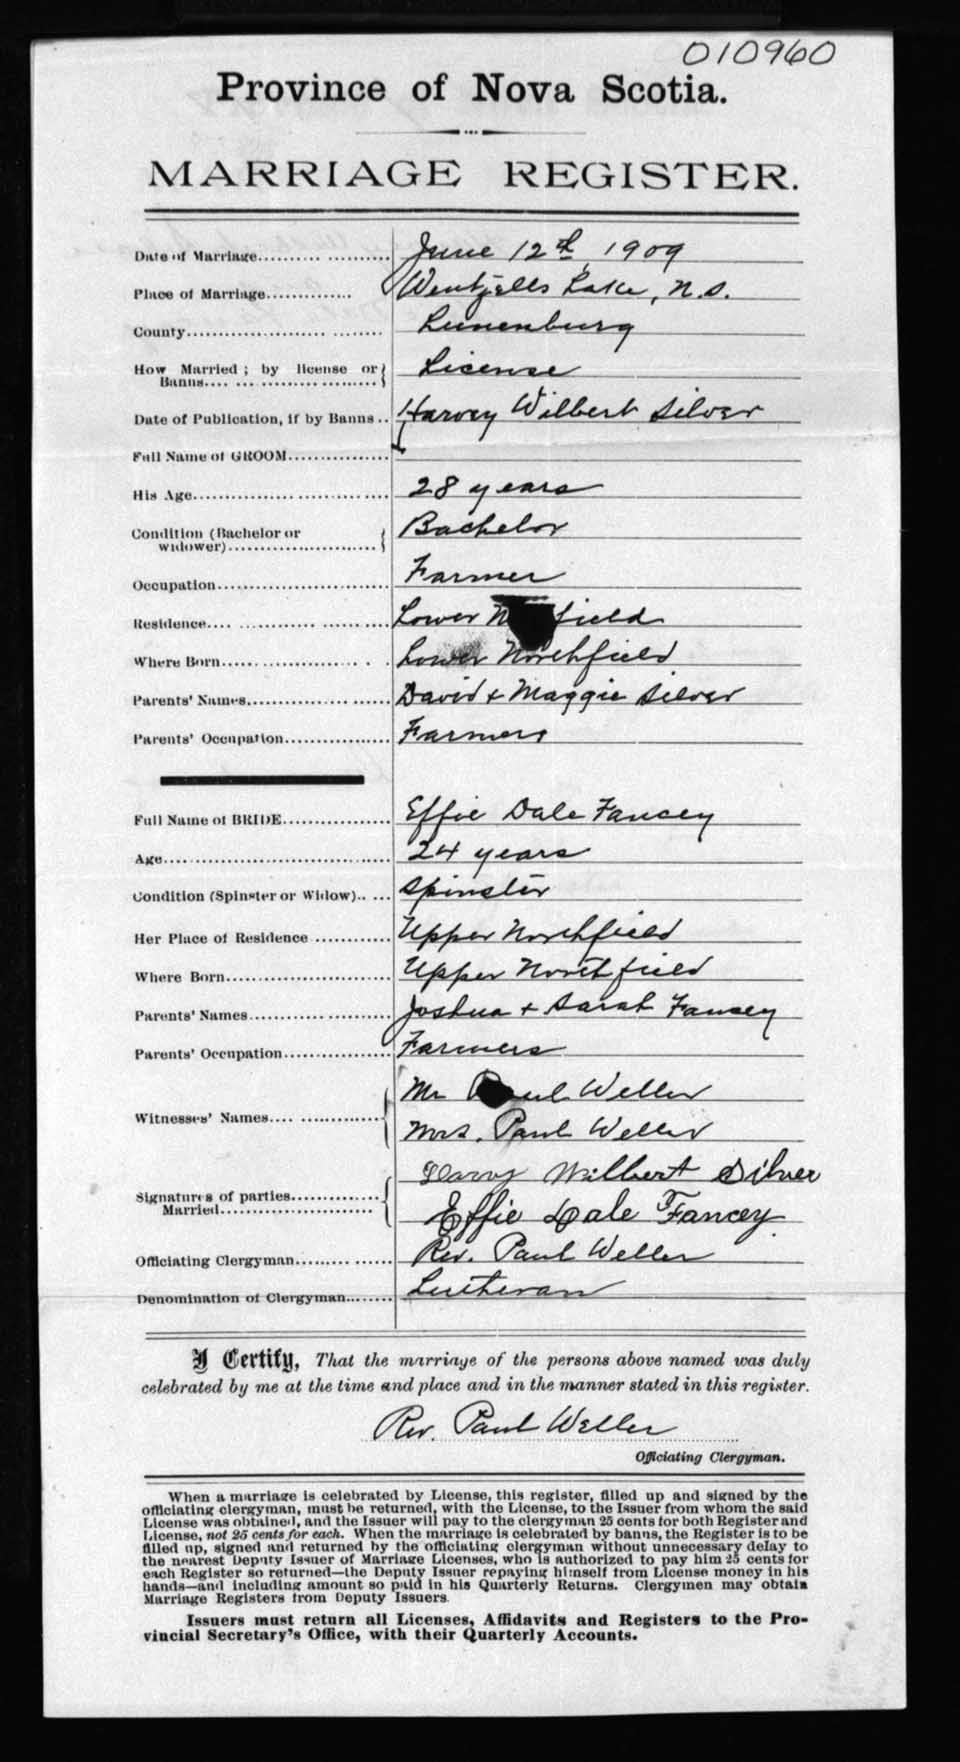 010960
Province of Nova Scotia.
MARRIAGE REGISTER.
Date of Marriage.......... .......... June 12th, 1909
Place of Marriage.............. Wentzells Lake, N.S.
County...................... ........ Lunenburg
How Married ; by license or Banns.... ... ....................... License
Date of Publication, if by Banns .. Harvey Wilbert Silver
Full Name of GROOM................
His Age................................ 28 years
Condition (Bachelor or widower)........................ Bachelor
Occupation........................... Farmer
Residence.... ............. .......... Lower field
Where Born.................... . . Lower Northfield
Parents' Names..................... David & Maggie Silver
Parents' Occupation................ Farmers
Full Name of BRIDE................ Effie Dale Fancey
Age.................................... 24 years
Condition (Spinster or Widow).. ... Spinster
Her Place of Residence ............ Upper Northfield
Where Born.......................... Upper Northfield
Parents' Names............ .......... Joshua + Sarah Fancey
Parents' Occupation................ Farmers
Mr Paul Weller
Witnesses' Names.... ..............
Mrs. Paul Weller
Harvy Wilbert Silver
Signatures of parties...............
Married.........................
Effie Dale Fancey.
Officiating Clergyman......... ...... Rev. Paul Weller
Denomination of Clergyman........ Lutheran
I Certify, That the marriage of the persons above named was duly
celebrated by me at the time and place and in the manner stated in this register.
Rev. Paul Weller
Officiating Clergyman.
When a marriage is celebrated by License, this register, filled up and signed by the
officiating clergyman, must be returned, with the License, to the Issuer from whom the said
License was obtained, and the Issuer will pay to the clergyman 25 cents for both Register and
License, not 25 cents for each. When the marriage is celebrated by banns, the Register is to be
filled up, signed and returned by the officiating clergyman without unnecessary delay to
the nearest Deputy Issuer of Marriage Licenses, who is authorized to pay him 25 cents for
each Register so returned—the Deputy Issuer repaying himself from License money in his
hands—and including amount so paid in his Quarterly Returns. Clergymen may obtain
Marriage Registers from Deputy Issuers.
Issuers must return all Licenses, Affidavits and Registers to the Pro-
vincial Secretary's Office, with their Quarterly Accounts.